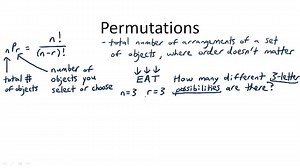 Permutations
nPr = n! / (n-r)!
total #
of objects
number of
objects you
select or choose
- total number of arrangements of a set
of objects, where order doesn't matter
EAT
n=3 r=3
How many different 3-letter
possibilities are there?